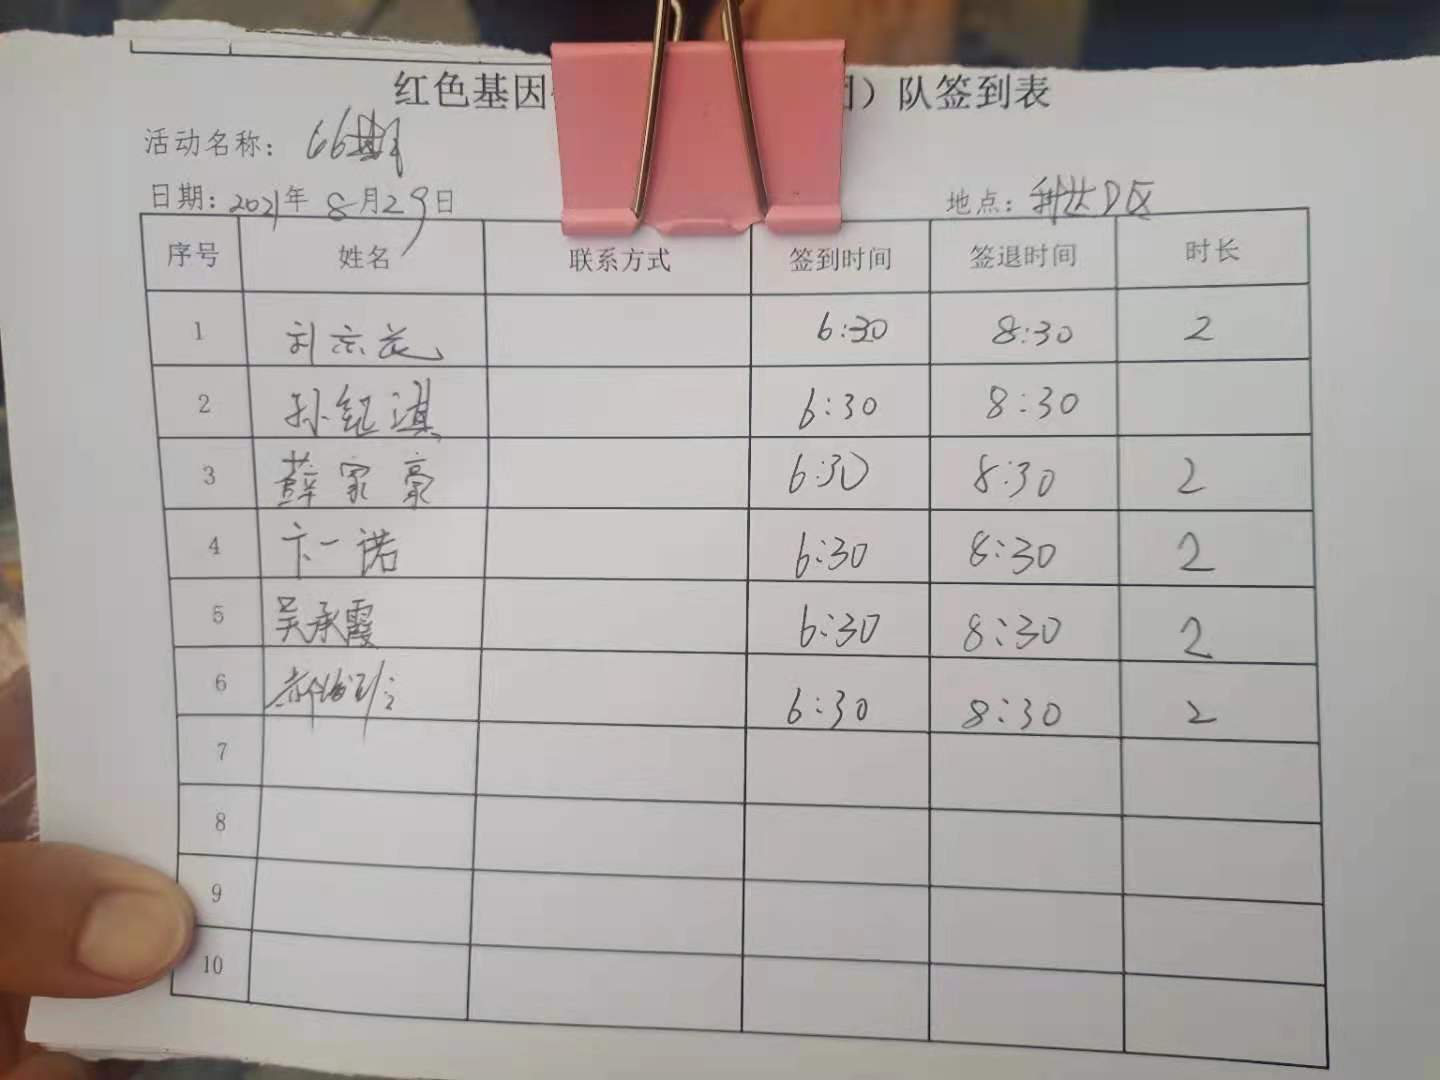 红色基因 ）队签到表
活动名称：66期
日期：2021年 8月29日 地点：利达D区
序号 姓名 联系方式 签到时间 签退时间 时长
1 刘 6:30 8:30 2
2 孙纪淇 6:30 8:30
3 薛家豪 6:30 8:30 2
4 卞一诺 6:30 8:30 2
5 吴承霞 6:30 8:30 2
6 6:30 8:30 2
7
8
9
10